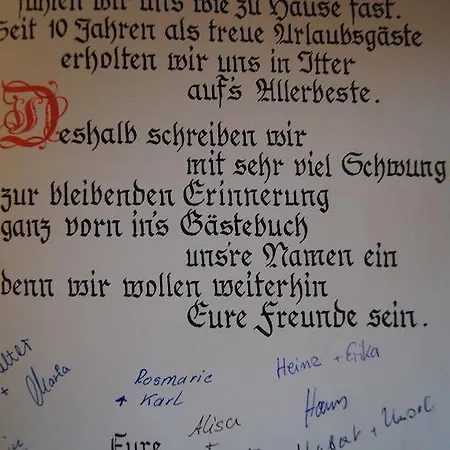 fühlen wir uns wie zu Hause fast.
Seit 10 Jahren als treue Urlaubsgäste
erholten wir uns in Itter
auf's Allerbeste.
Deshalb schreiben wir
mit sehr viel Schwung
zur bleibenden Erinnerung
ganz vorn in's Gästebuch
uns're Namen ein
denn wir wollen weiterhin
Eure Freunde sein.
+ Maria
Rosmarie
+ Karl
Heinz + Erika
Alisa
Hans
Eure